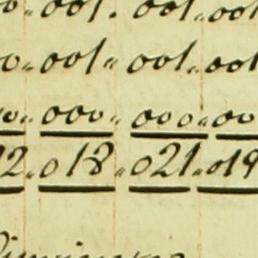 001. 001. 001
001 " 001 " 001
000 " 000 " 00
2 " 018 " 021 " 019